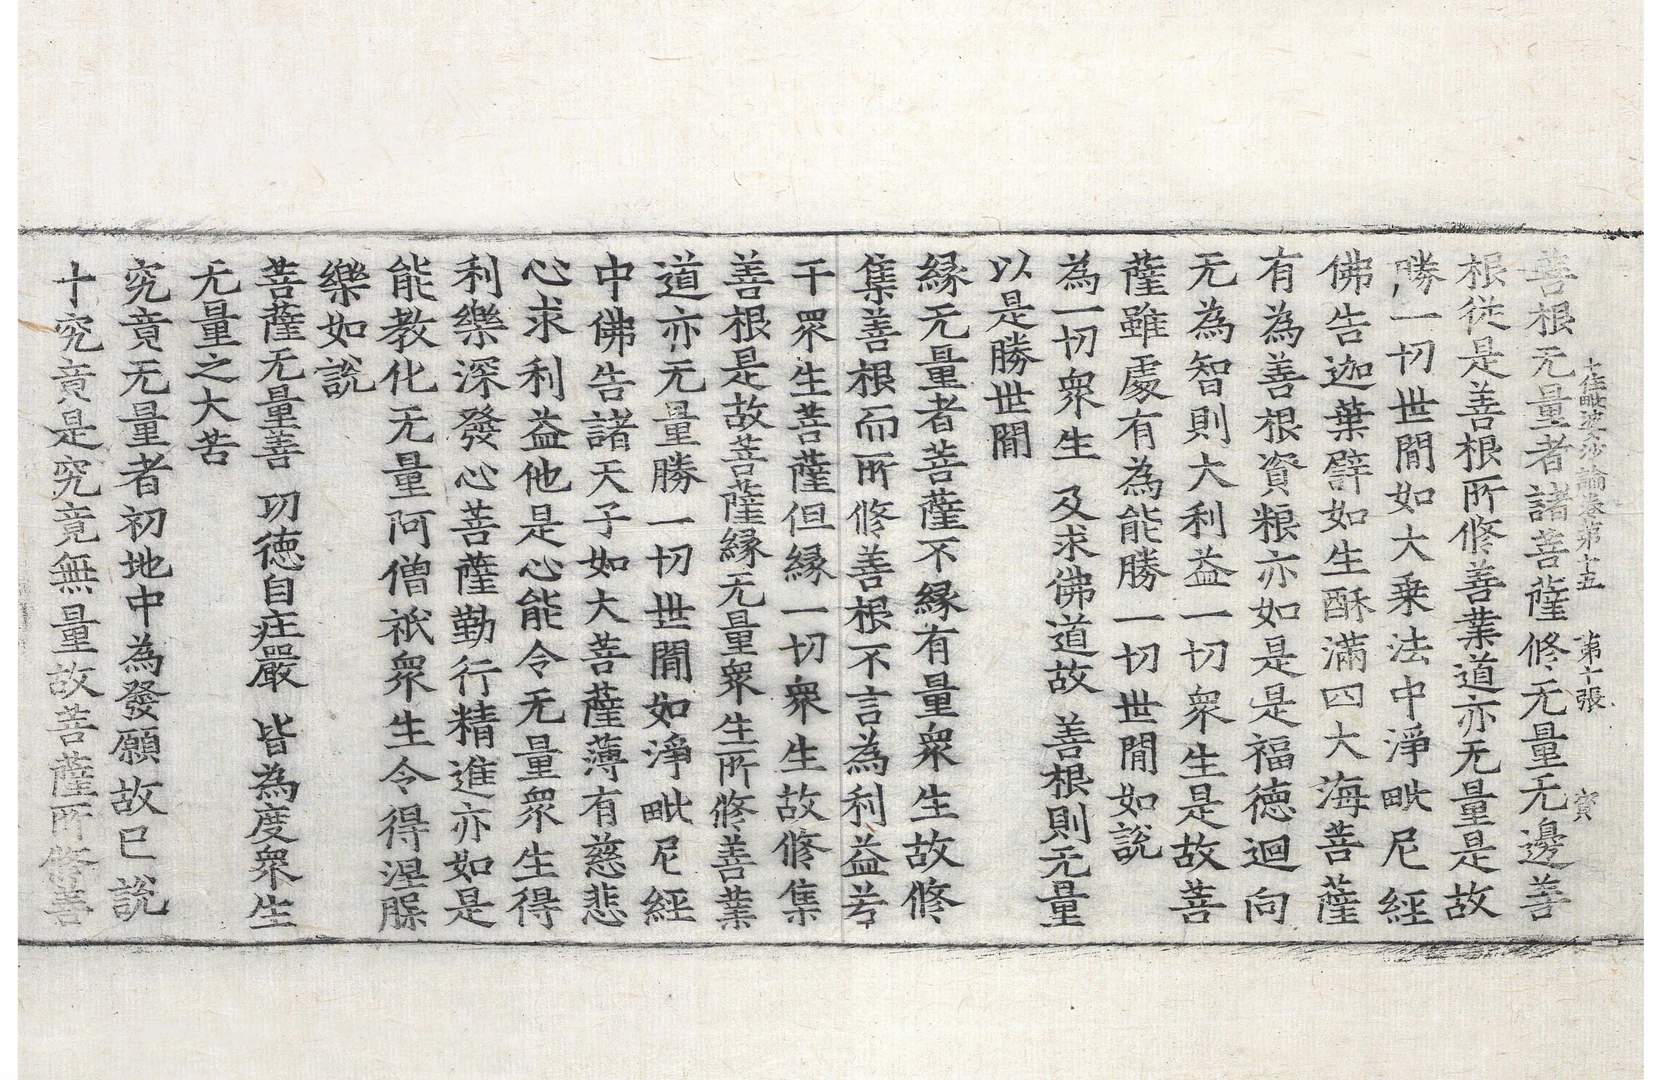 十住毗婆沙論卷第十五 第十張 寳
善根无量者諸菩薩修无量无邊善
根從是善根所修善業道亦无量是故
勝一切世閒如大乗法中淨毗尼經
佛告迦葉譬如生酥滿四大海菩薩
有為善根資粮亦如是是福德迴向
无為智則大利益一切衆生是故菩
薩雖處有為能勝一切世閒如說
為一切衆生 及求佛道故 善根則无量
以是勝世閒
縁无量者菩薩不縁有量衆生故修
集善根而所修善根不言為利益若
干眾生菩薩但縁一切衆生故修集
善根是故菩薩縁无量衆生所修善業
道亦无量勝一切世閒如淨毗尼經
中佛告諸天子如大菩薩薄有慈悲
心求利益他是心能令无量衆生得
利樂深發心菩薩勤行精進亦如是
能教化无量阿僧祇衆生令得涅槃
樂如說
菩薩无量善 功徳自庄嚴 皆為度衆生
无量之大苦
究竟无量者初地中為發願故已說
十究竟是究竟無量故菩薩所修善